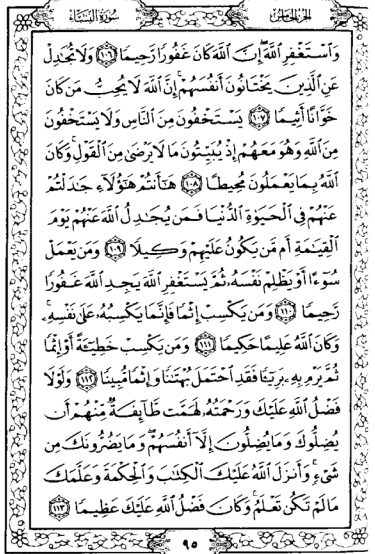 الجزء الخامس سورة النساء
وَٱسْتَغْفِرِ ٱللَّهَ إِنَّ ٱللَّهَ كَانَ غَفُورًا رَّحِيمًا ١٠٦ وَلَا تُجَٰدِلْ
عَنِ ٱلَّذِينَ يَخْتَانُونَ أَنفُسَهُمْ إِنَّ ٱللَّهَ لَا يُحِبُّ مَن كَانَ
خَوَّانًا أَثِيمًا ١٠٧ يَسْتَخْفُونَ مِنَ ٱلنَّاسِ وَلَا يَسْتَخْفُونَ
مِنَ ٱللَّهِ وَهُوَ مَعَهُمْ إِذْ يُبَيِّتُونَ مَا لَا يَرْضَىٰ مِنَ ٱلْقَوْلِ وَكَانَ
ٱللَّهُ بِمَا يَعْمَلُونَ مُحِيطًا ١٠٨ هَٰٓأَنتُمْ هَٰٓؤُلَآءِ جَٰدَلْتُمْ
عَنْهُمْ فِي ٱلْحَيَوٰةِ ٱلدُّنْيَا فَمَن يُجَٰدِلُ ٱللَّهَ عَنْهُمْ يَوْمَ
ٱلْقِيَٰمَةِ أَم مَّن يَكُونُ عَلَيْهِمْ وَكِيلًا ١٠٩ وَمَن يَعْمَلْ
سُوٓءًا أَوْ يَظْلِمْ نَفْسَهُۥ ثُمَّ يَسْتَغْفِرِ ٱللَّهَ يَجِدِ ٱللَّهَ غَفُورًا
رَّحِيمًا ١١٠ وَمَن يَكْسِبْ إِثْمًا فَإِنَّمَا يَكْسِبُهُۥ عَلَىٰ نَفْسِهِۦ
وَكَانَ ٱللَّهُ عَلِيمًا حَكِيمًا ١١١ وَمَن يَكْسِبْ خَطِيٓـَٔةً أَوْ إِثْمًا
ثُمَّ يَرْمِ بِهِۦ بَرِيٓـًٔا فَقَدِ ٱحْتَمَلَ بُهْتَٰنًا وَإِثْمًا مُّبِينًا ١١٢ وَلَوْلَا
فَضْلُ ٱللَّهِ عَلَيْكَ وَرَحْمَتُهُۥ لَهَمَّت طَّآئِفَةٌ مِّنْهُمْ أَن
يُضِلُّوكَ وَمَا يُضِلُّونَ إِلَّآ أَنفُسَهُمْ وَمَا يَضُرُّونَكَ مِن
شَيْءٍ وَأَنزَلَ ٱللَّهُ عَلَيْكَ ٱلْكِتَٰبَ وَٱلْحِكْمَةَ وَعَلَّمَكَ
مَا لَمْ تَكُن تَعْلَمُ وَكَانَ فَضْلُ ٱللَّهِ عَلَيْكَ عَظِيمًا ١١٣
٩٥